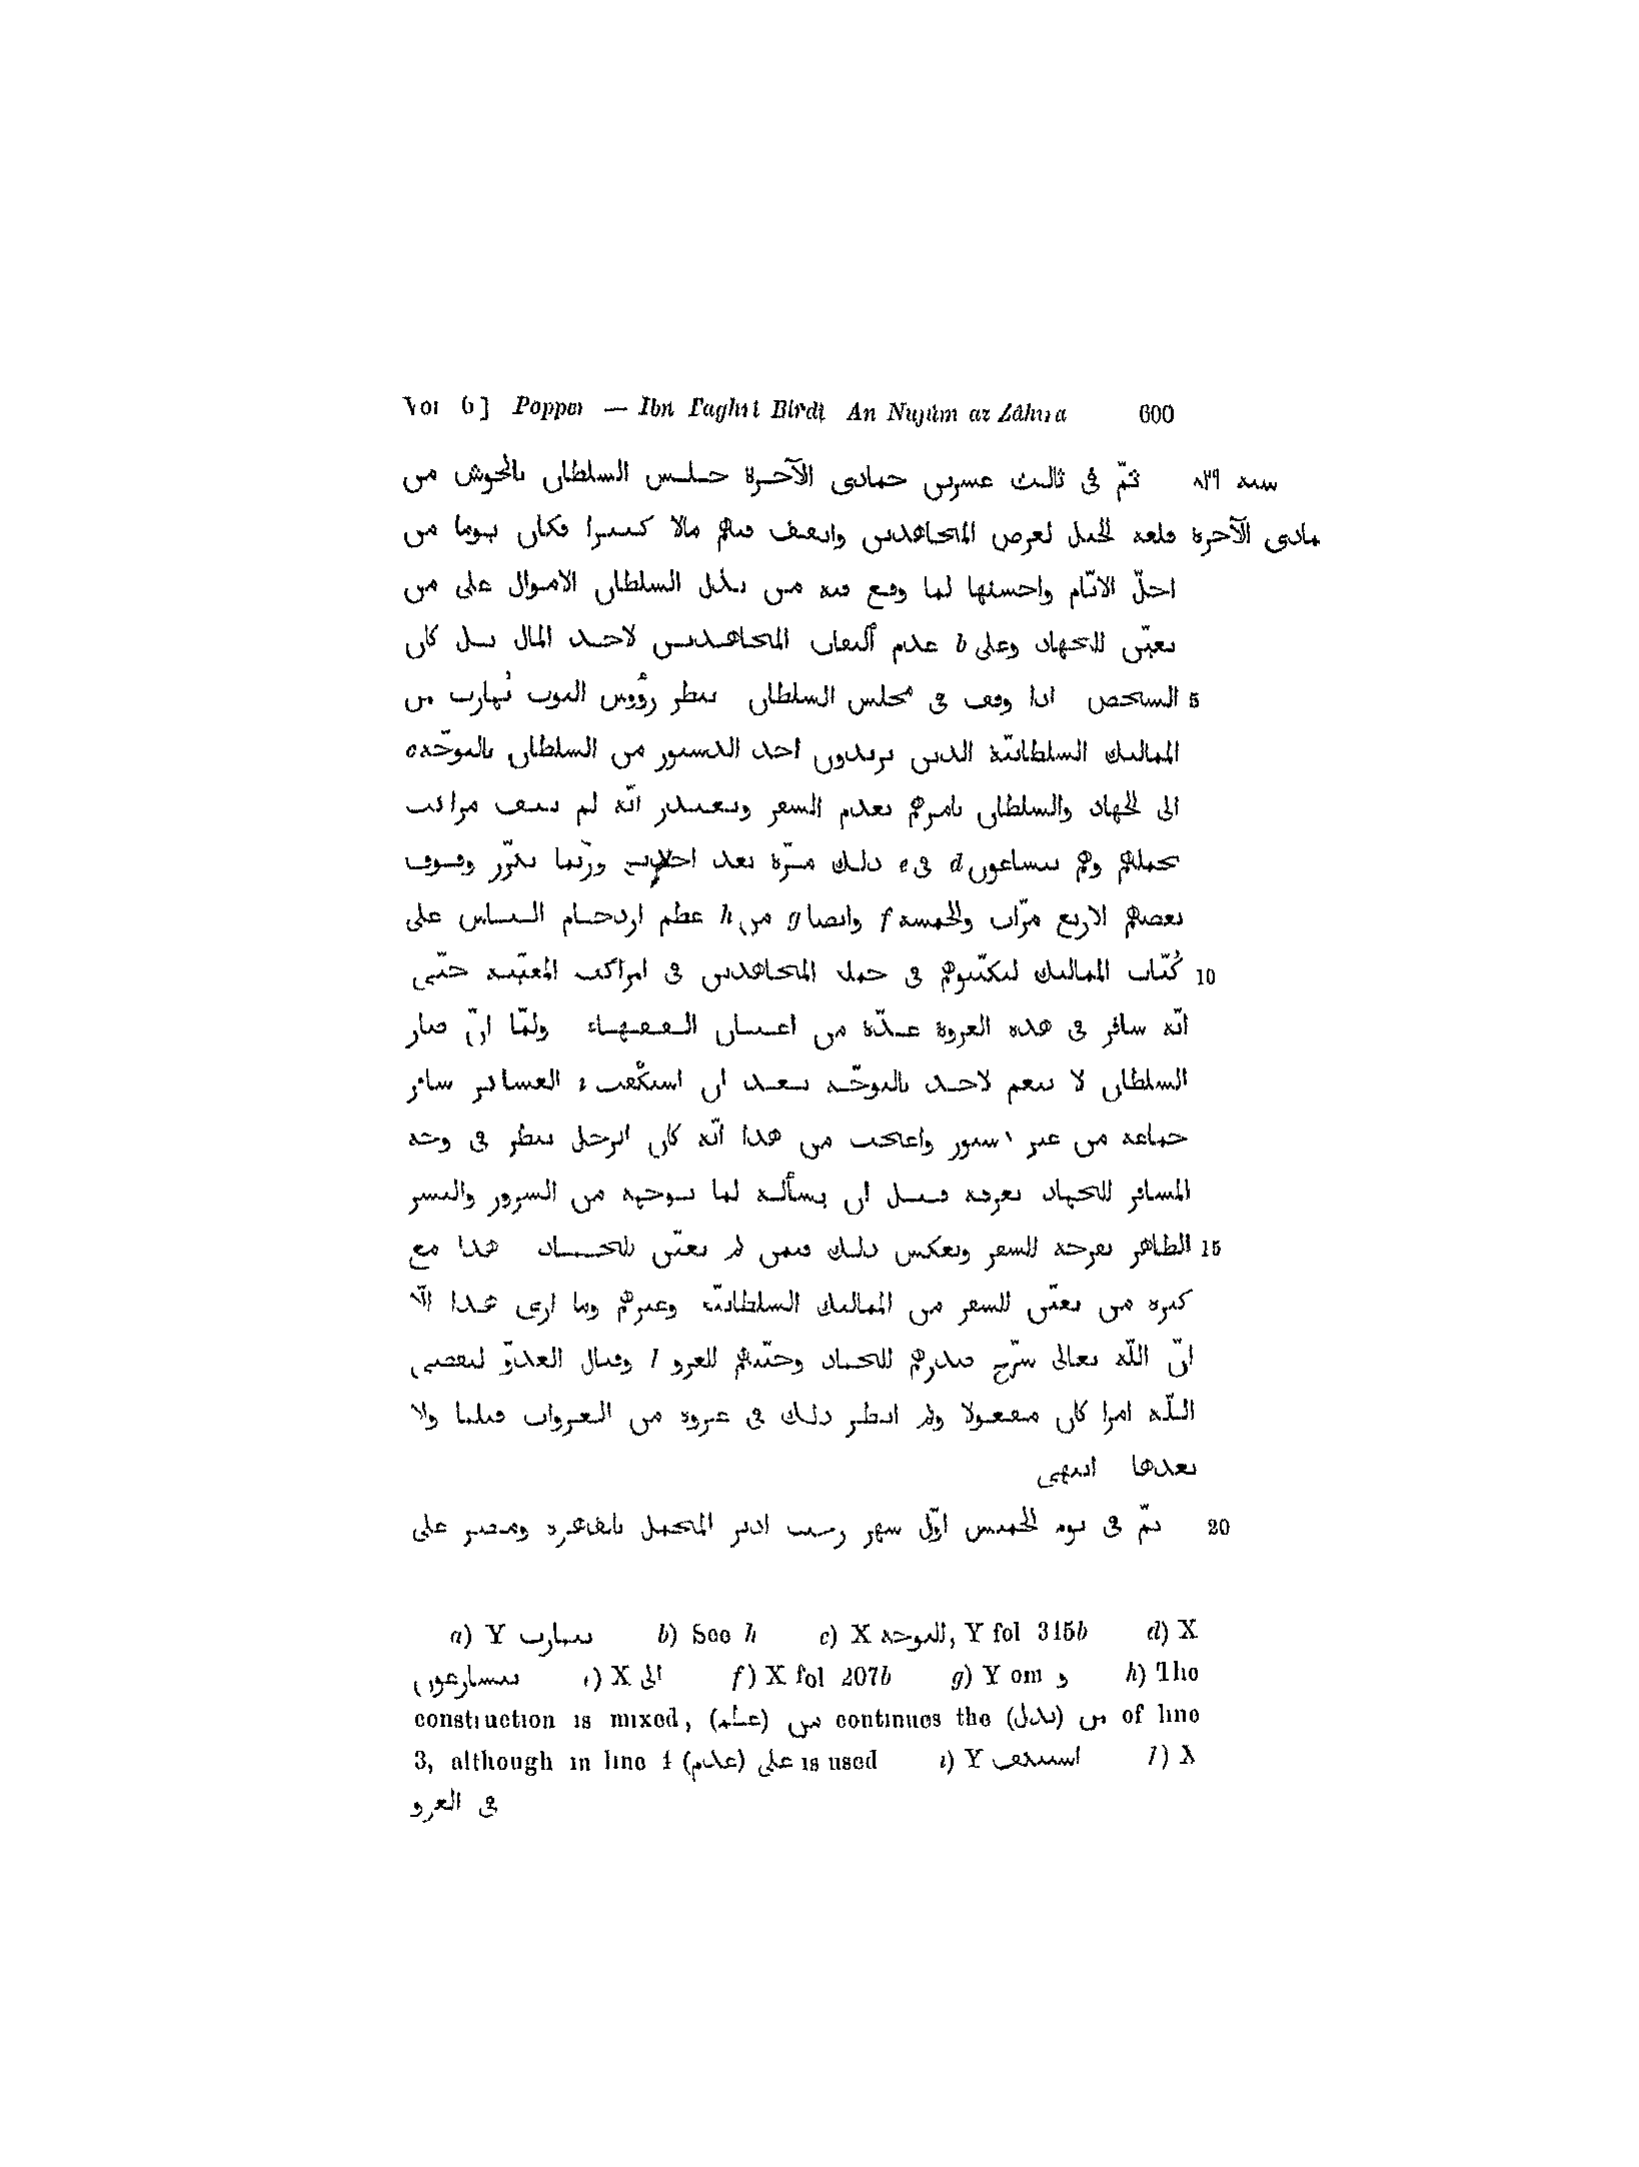 Vol 6] Popper — Ibn Taghri Birdi An Nujûm az Zâhira 600
سنة ٨٢٩ ثمّ فى ثالث عشرين جمادى الآخرة جلس السلطان بالحوش من
جمادى الآخرة قلعة الجبل لعرض المجاهدين وانفق فيهم مالا كثيرا فكان يوما من
اجلّ الايّام واحسنها لما وقع فيه من بذل السلطان الاموال على من
تعيّن للجهاد وعلى b عدم ألتفات المجاهدين لاخذ المال بل كان
5 الشخص اذا وقف فى مجلس السلطان ينظر رؤوس النوب تُهارب من
المماليك السلطانيّة الذين يريدون اخذ الدستور من السلطان بالتوجّه c
الى الجهاد والسلطان يامرهم بعدم السفر ويعتذر انّه لم يبق مراكب
تحملهم وهم يتساعون d فى e ذلك مرّة بعد اخرى وربّما تكرّر وقوف
بعضهم الاربع مرّات والخمسة f وايضا g من h عظم ازدحام الناس على
10 كُتّاب المماليك ليكتبوهم فى جملة المجاهدين فى المراكب المعيّنة حتّى
انّه سافر فى هذه الغزوة عدّة من اعيان الفقهاء ولمّا ان صار
السلطان لا ينعم لاحد بالتوجّه بعد ان استكفت i العساكر سافر
جماعة من غير دستور واعجب من هذا انّه كان الرجل ينظر فى وجه
المسافر للجهاد يعرفه قبل ان يسأله لما بوجهه من السرور والبشر
15 الظاهر بفرحه للسفر وبعكس ذلك فيمن لم يعيّن للجهاد هذا مع
كثرة من تعيّن للسفر من المماليك السلطانيّة وغيرهم وما ارى هذا الّا
انّ اللّه تعالى شرح صدرهم للجهاد وحبّبهم للغزو l وقتال العدوّ ليقضى
اللّه امرا كان مفعولا ولم انظر ذلك فى غزوة من الغزوات قبلها ولا
بعدها انتهى
20 ثمّ فى يوم الخميس اوّل شهر رجب ادير المحمل بالقاهرة ومصر على
a) Y b) See h c) X للتوجه, Y fol 315b d) X
يتسارعون e) X الى f) X fol 207b g) Y om و h) The
construction is mixed, من (عظم) continues the من (بذل) of line
3, although in line 4 على (عدم) is used i) Y l) X
فى الغزو